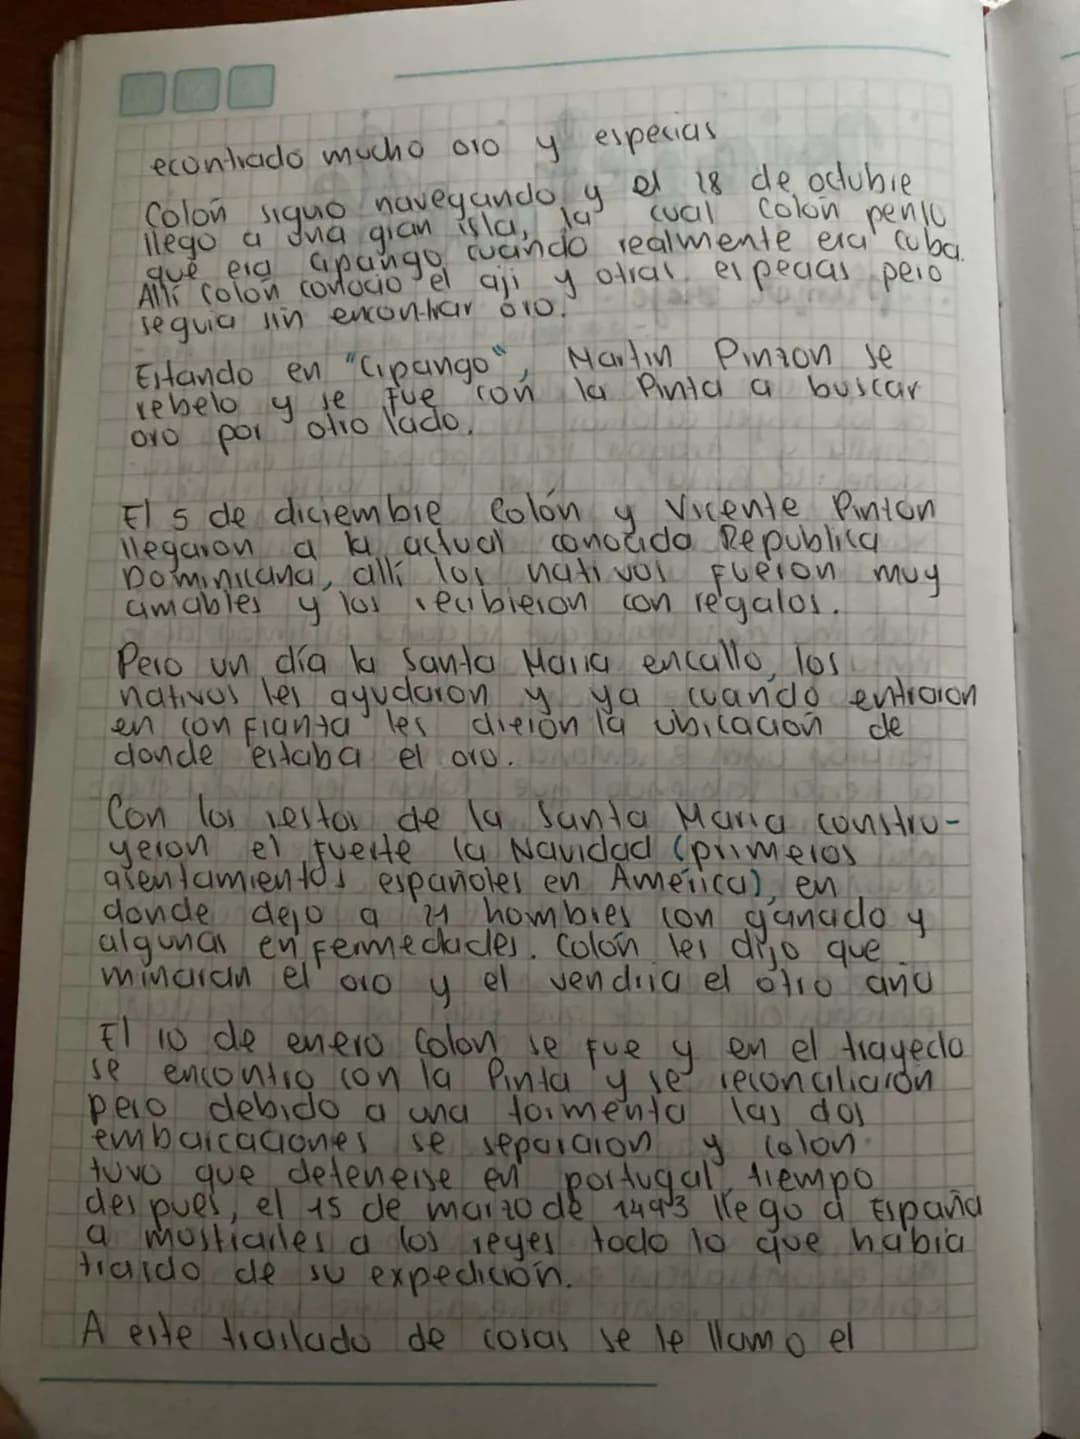 econtrado mucho oro y especias
Colón siguo navegando, y el 18 de octubre
llego a una gran isla, la cual Colón penso
que era cipango cuando realmente era Cuba.
Allí Colón conocio el aji y otras especias pero
seguia sin encontrar oro.
Estando en "Cipango", Martin Pinzon se
rebelo y se fue con la Pinta a buscar
oro por otro lado.
El 5 de diciembre Colón y Vicente Pinzon
llegaron a la actual conocida Republica
Dominicana, allí los nativos fueron muy
amables y los recibieron con regalos.
Pero un día la Santa Maria encallo, los
nativos les ayudaron y ya cuando entraron
en confianza les dieron la ubicación de
donde estaba el oro.
Con los restos de la Santa Maria constru-
yeron el fuerte la Navidad (primeros
asentamientos españoles en América), en
donde dejo a 21 hombres con ganado y
algunas enfermedades. Colón les dijo que
minaran el oro y el vendria el otro año
El 10 de enero Colon se fue y en el trayecto
se encontro con la Pinta y se reconciliaron
pero debido a una tormenta las dos
embarcaciones se separaron y Colon
tuvo que detenerse en portugal, tiempo
despues, el 15 de marzo de 1493 llego a España
a mostrarles a los reyes todo lo que habia
traido de su expedición.
A este traslado de cosas se le llamo el